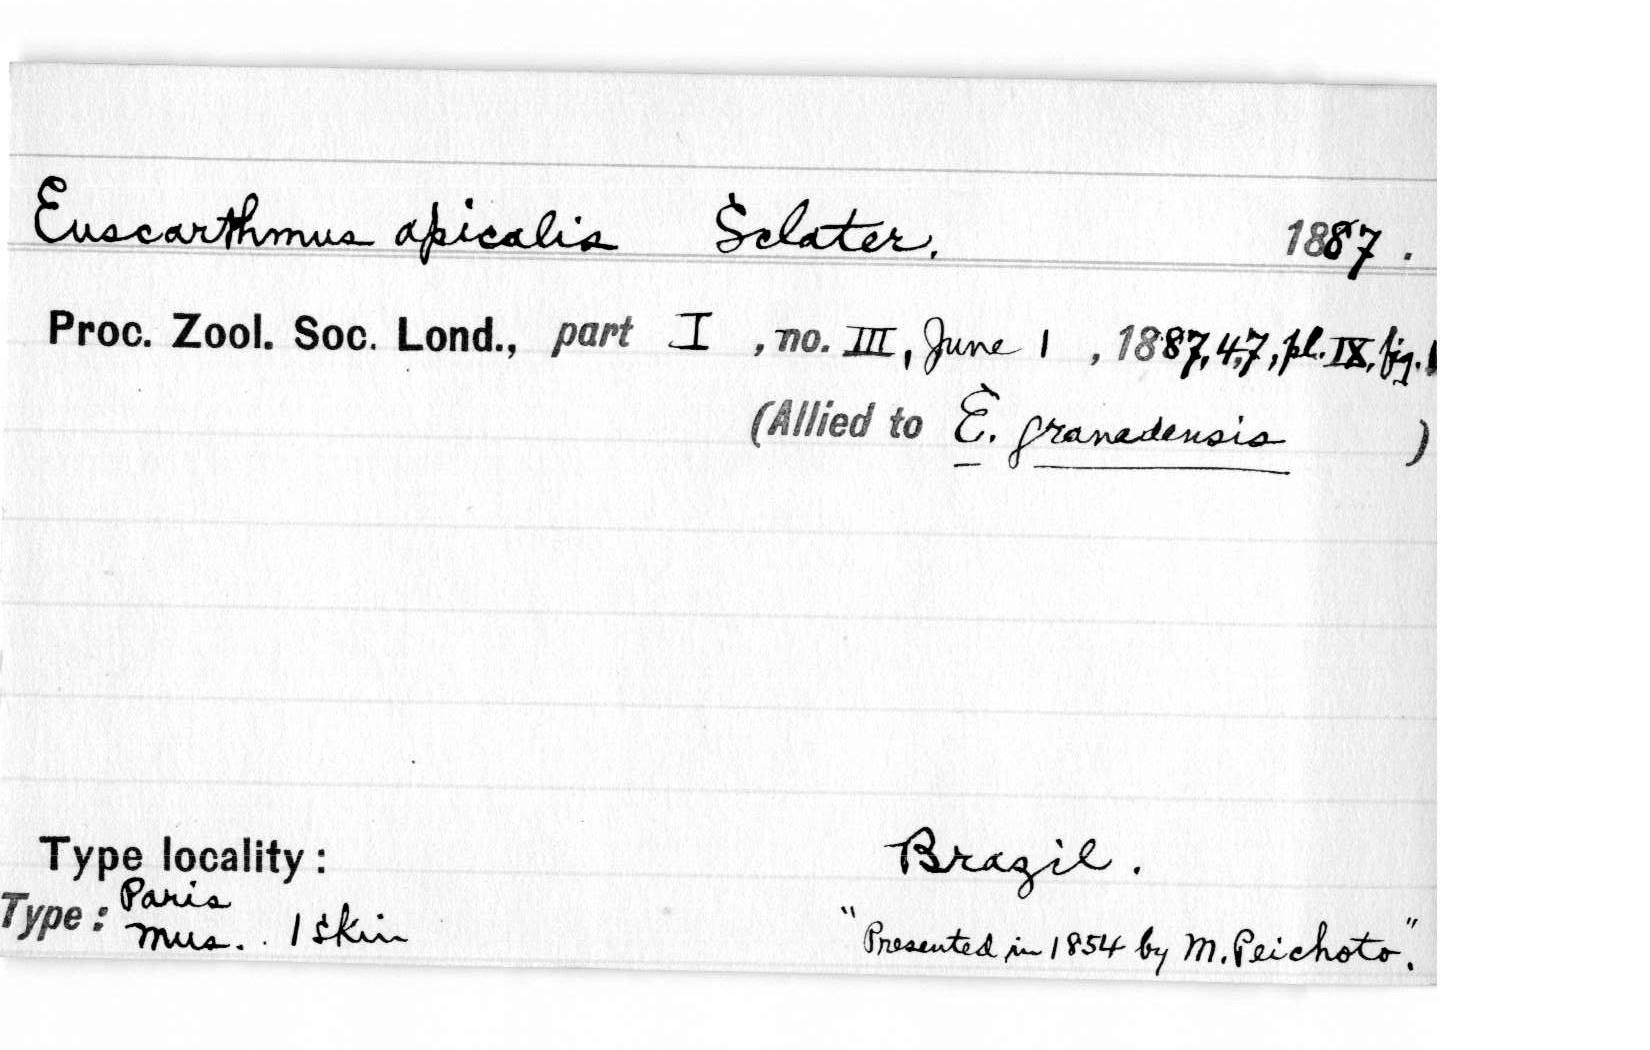 Euscarthmus apicalis Sclater. 1887.
Proc. Zool. Soc. Lond., part I, no. III, June 1, 1887, 47, pl. IX, fig. 1
(Allied to E. granadensis )
Type locality: Brazil.
Type: Paris Mus. 1 skin
"Presented in 1854 by M. Peichoto".